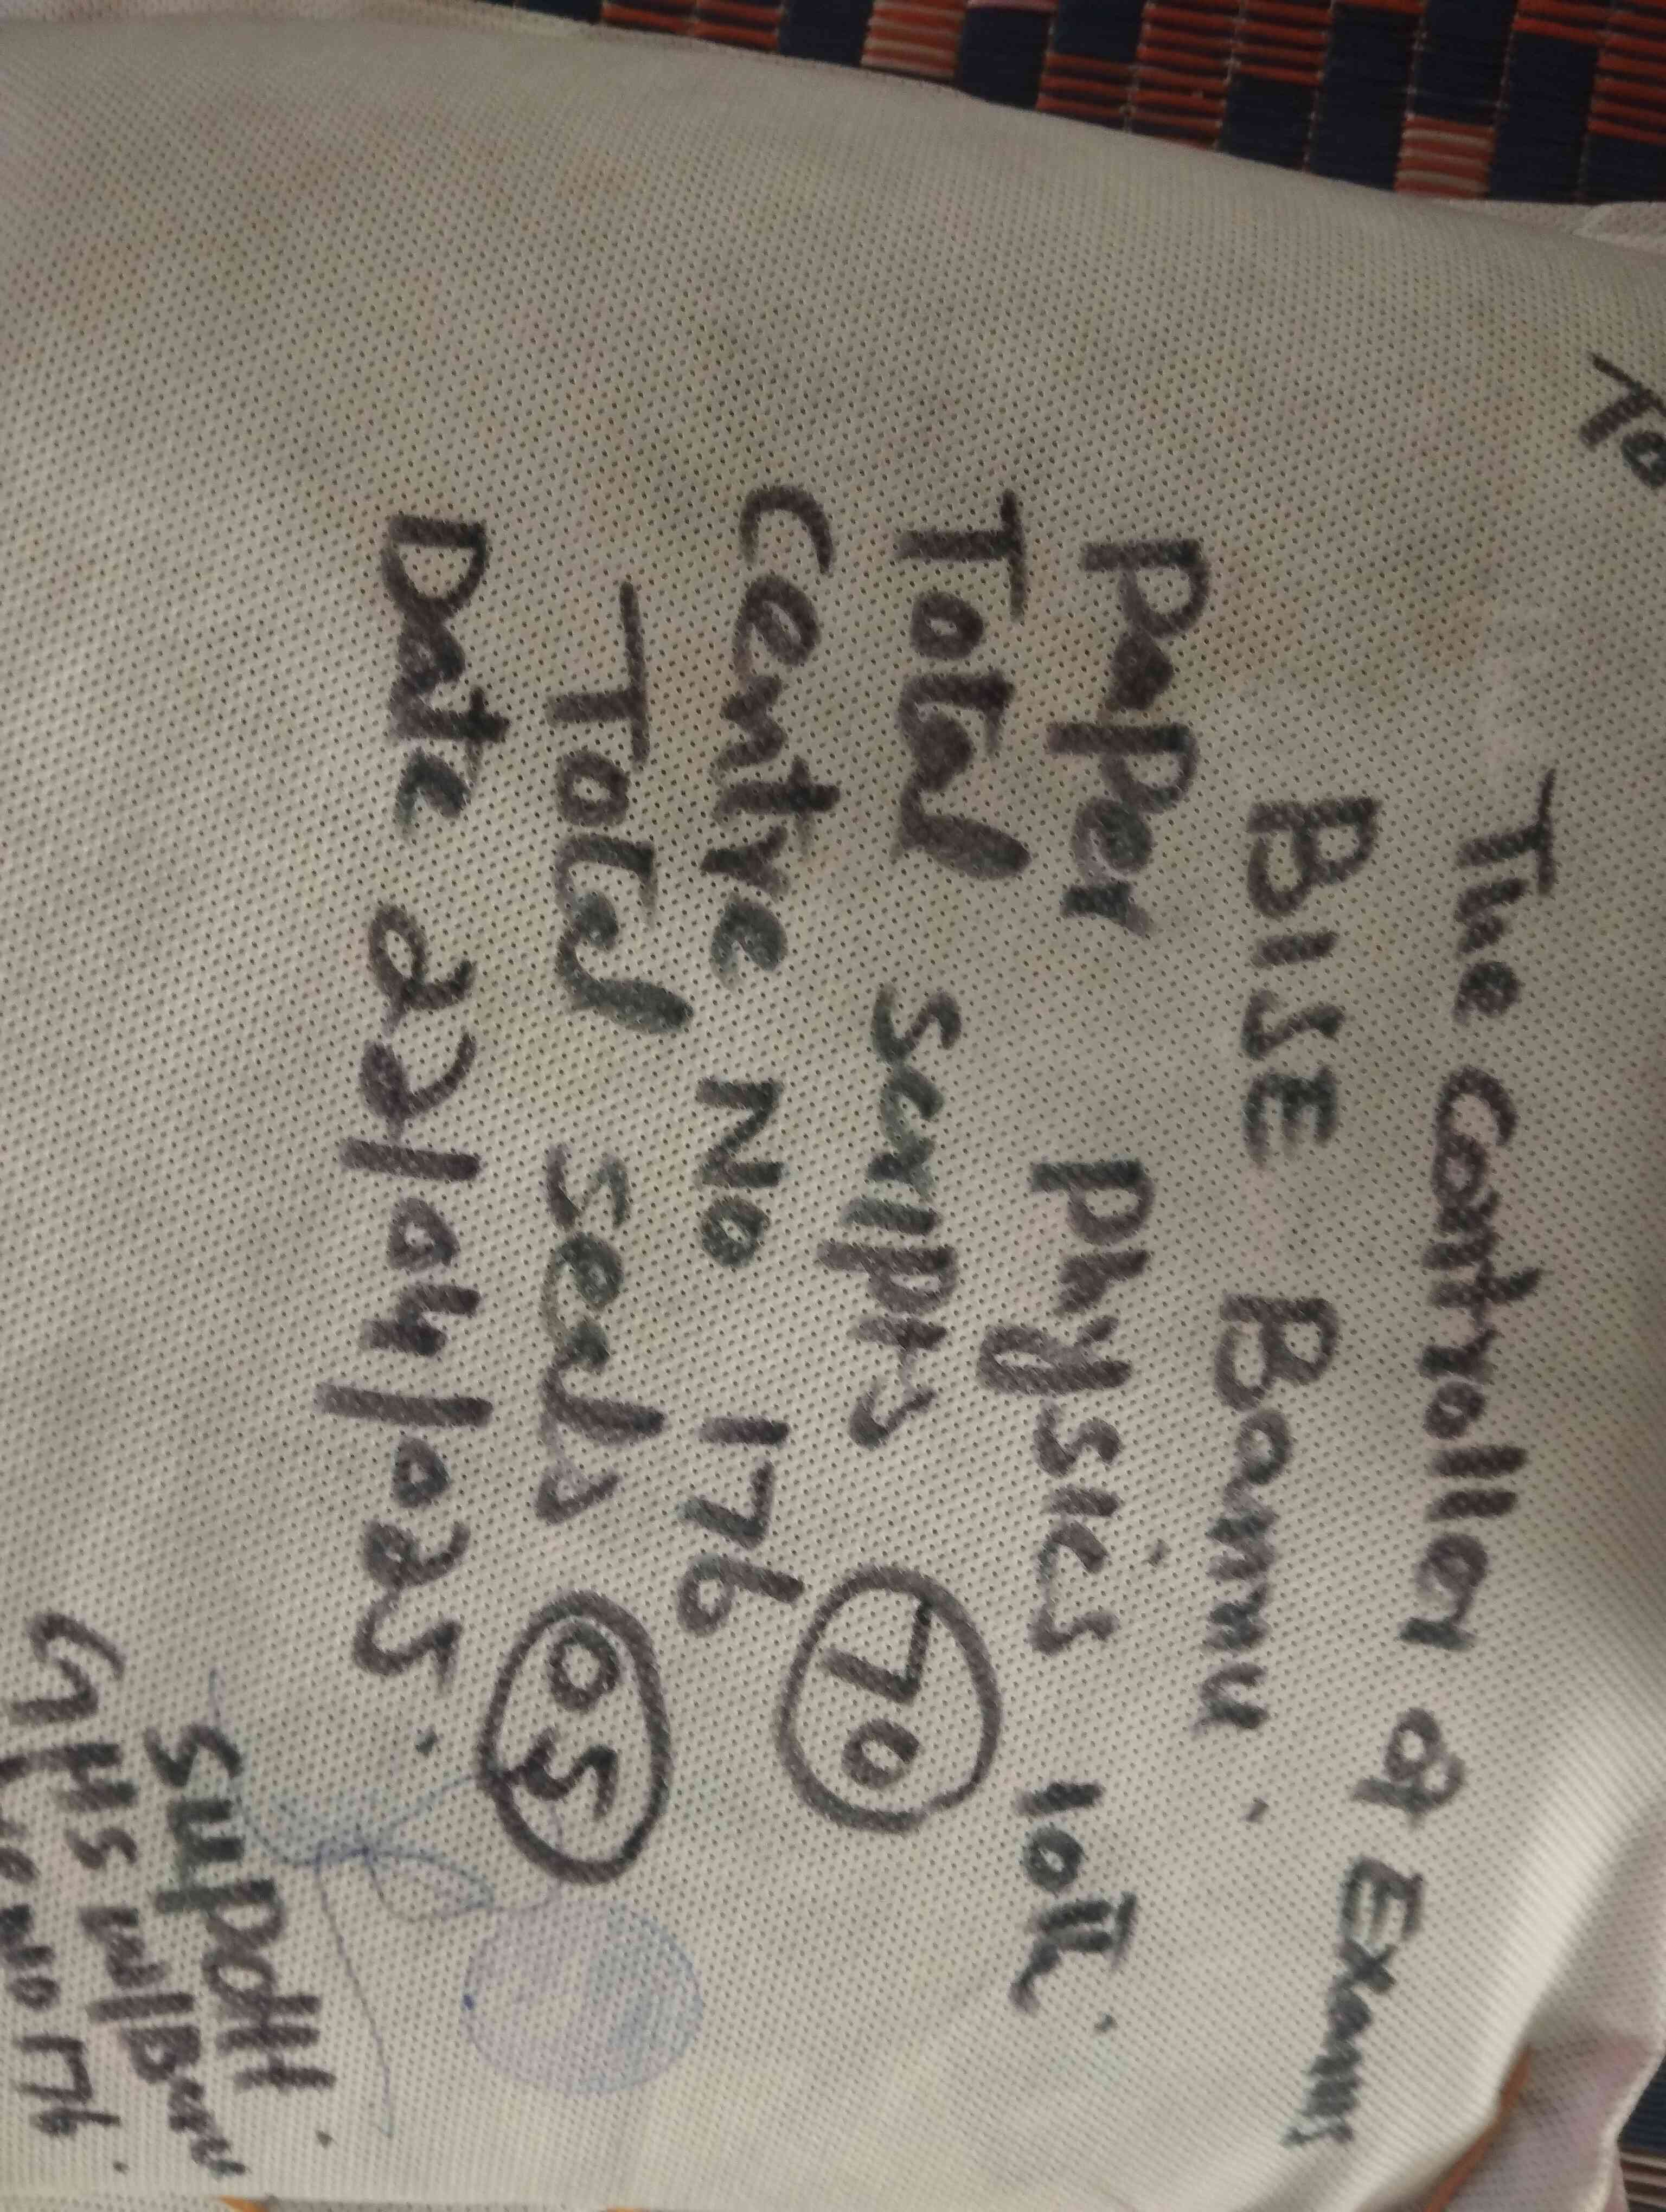 To
The Controller of Exams
BISE Bannu.
Paper Physics 10th II.
Total Scripts 70
Centre No 176
Total Seals 05
Date 25/04/025.
Supdtt.
GHS
No 176.